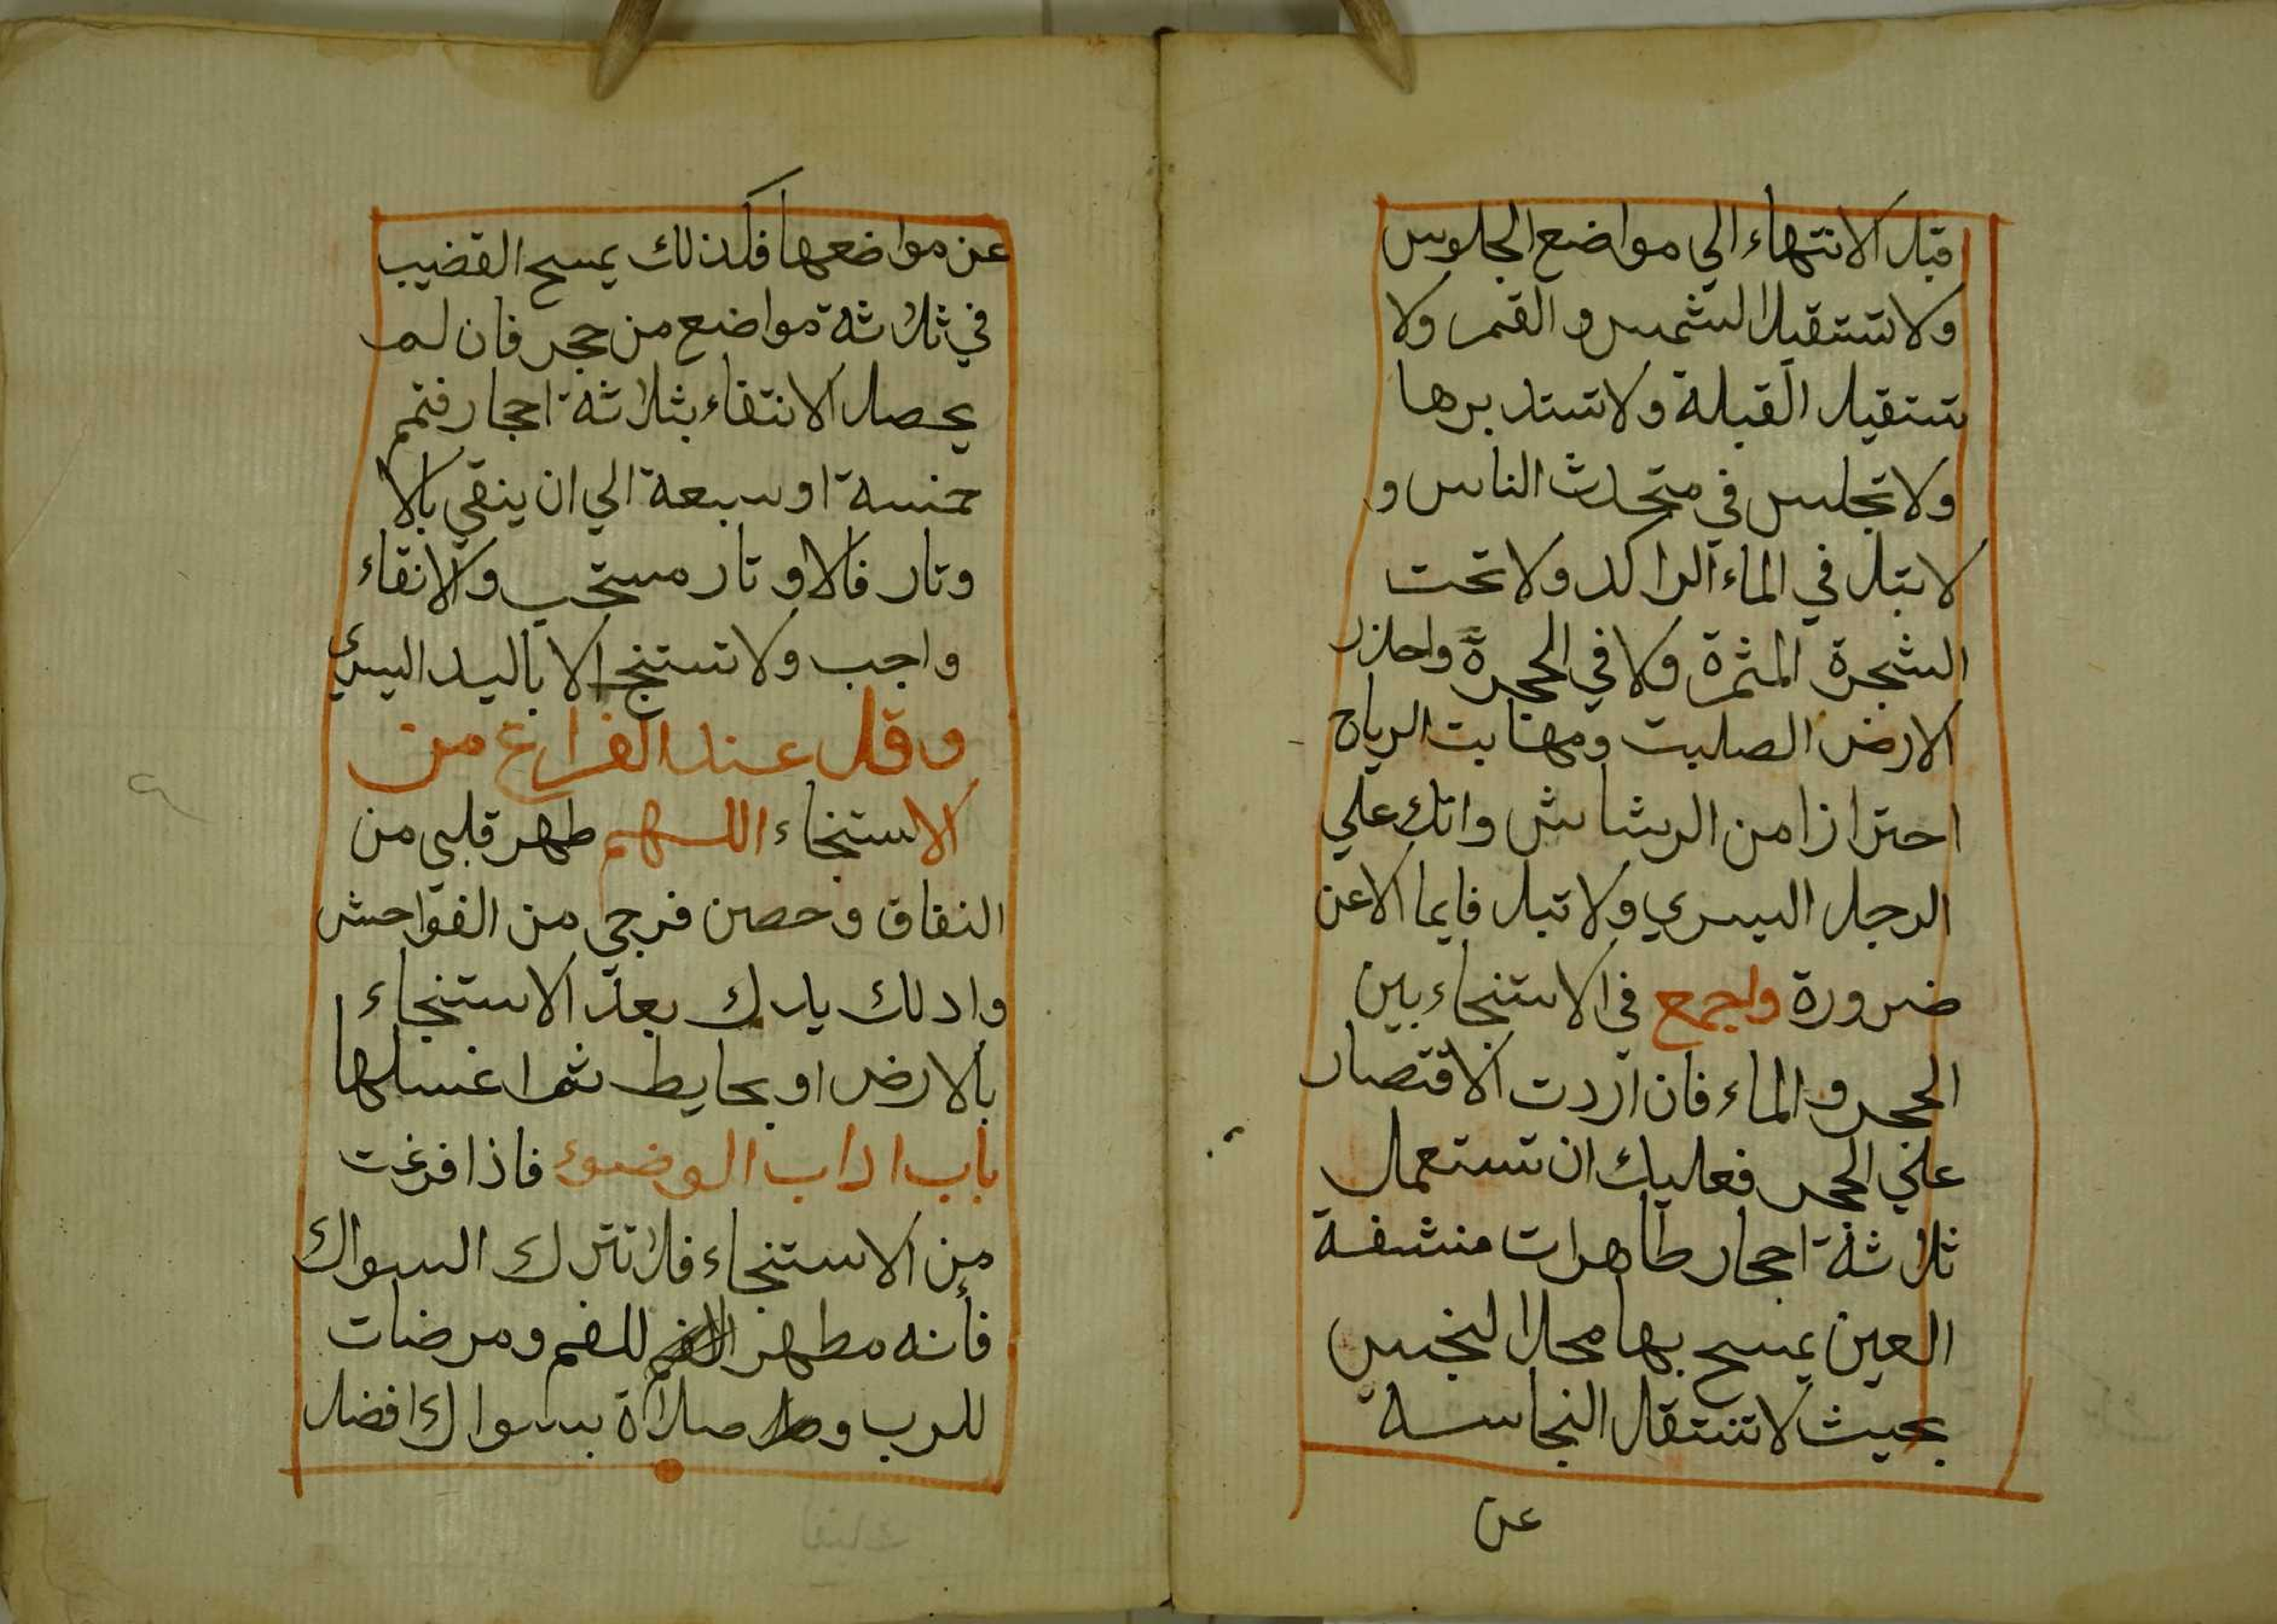 قبل الانتهاء الي مواضع الجلوس
ولا تستقبل الشمس و القمر ولا
تستقبل القبلة ولا تستدبرها
ولا تجلس في متحدث الناس و
لا تبل في الماء الراكد ولا تحت
الشجرة المثمرة ولا في الحجرة واحذر
الارض الصلبت ومهابت الرياح
احترازا من الرشاش واتك علي
الرجل اليسري ولا تبل قايما الا عن
ضرورة واجمع في الاستنجاء بين
الحجر و الماء فان اردت الاقتصار
علي الحجر فعليك ان تستعمل
ثلاثة احجار طاهرات منشفة
العين يمسح بها محل النجس
بحيث لا تنتقل النجاسة
عن
عن مواضعها فكذلك يمسح القضيب
في ثلاثة مواضع من حجر فان لم
يحصل الانتقاء بثلاثة احجار فتمم
خمسة او سبعة الي ان ينقي بالا
وتار فالاوتار مستحب والانقاء
واجب ولا تستنج الا باليد اليسري
وقل عند الفراغ من
الاستنجاء اللهم طهر قلبي من
النفاق وحصن فرجي من الفواحش
وادلك يدك بعد الاستنجاء
بالارض او بحايط ثم اغسلها
باب اداب الوضوء فاذا فرغت
من الاستنجاء فلا تترك السواك
فأنه مطهر للفم ومرضات
للرب و صلاة بسواك افضل